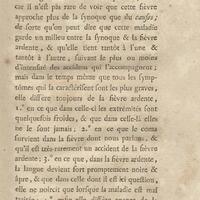 car il n'est pas rare de voir que cette fièvre
approche plus de la synoque que du causus ;
de sorte qu'on peut dire que cette maladie
garde un milieu entre la synoque & la fièvre
ardente , & qu'elle tient tantôt à l'une &
tantôt à l'autre , suivant le plus ou moins
d'intensité des accidens qui l'accompagnent ;
mais dans le temps même que tous les symp-
tômes qui la caractérisent sont les plus graves,
elle diffère toujours de la fièvre ardente ,
1.° en ce que dans celle-ci les extrémités sont
quelquefois froides , & que dans celle-là elles
ne le sont jamais ; 2.° en ce que le coma
survient dans la fièvre dont nous parlons , &
qu'il est très-rarement un accident de la fièvre
ardente ; 3.° en ce que, dans la fièvre ardente,
la langue devient fort promptement noire &
âpre , & que dans celle dont il est ici question,
elle ne noircit que lorsque la maladie est mal
enfin elle diffère encore de la